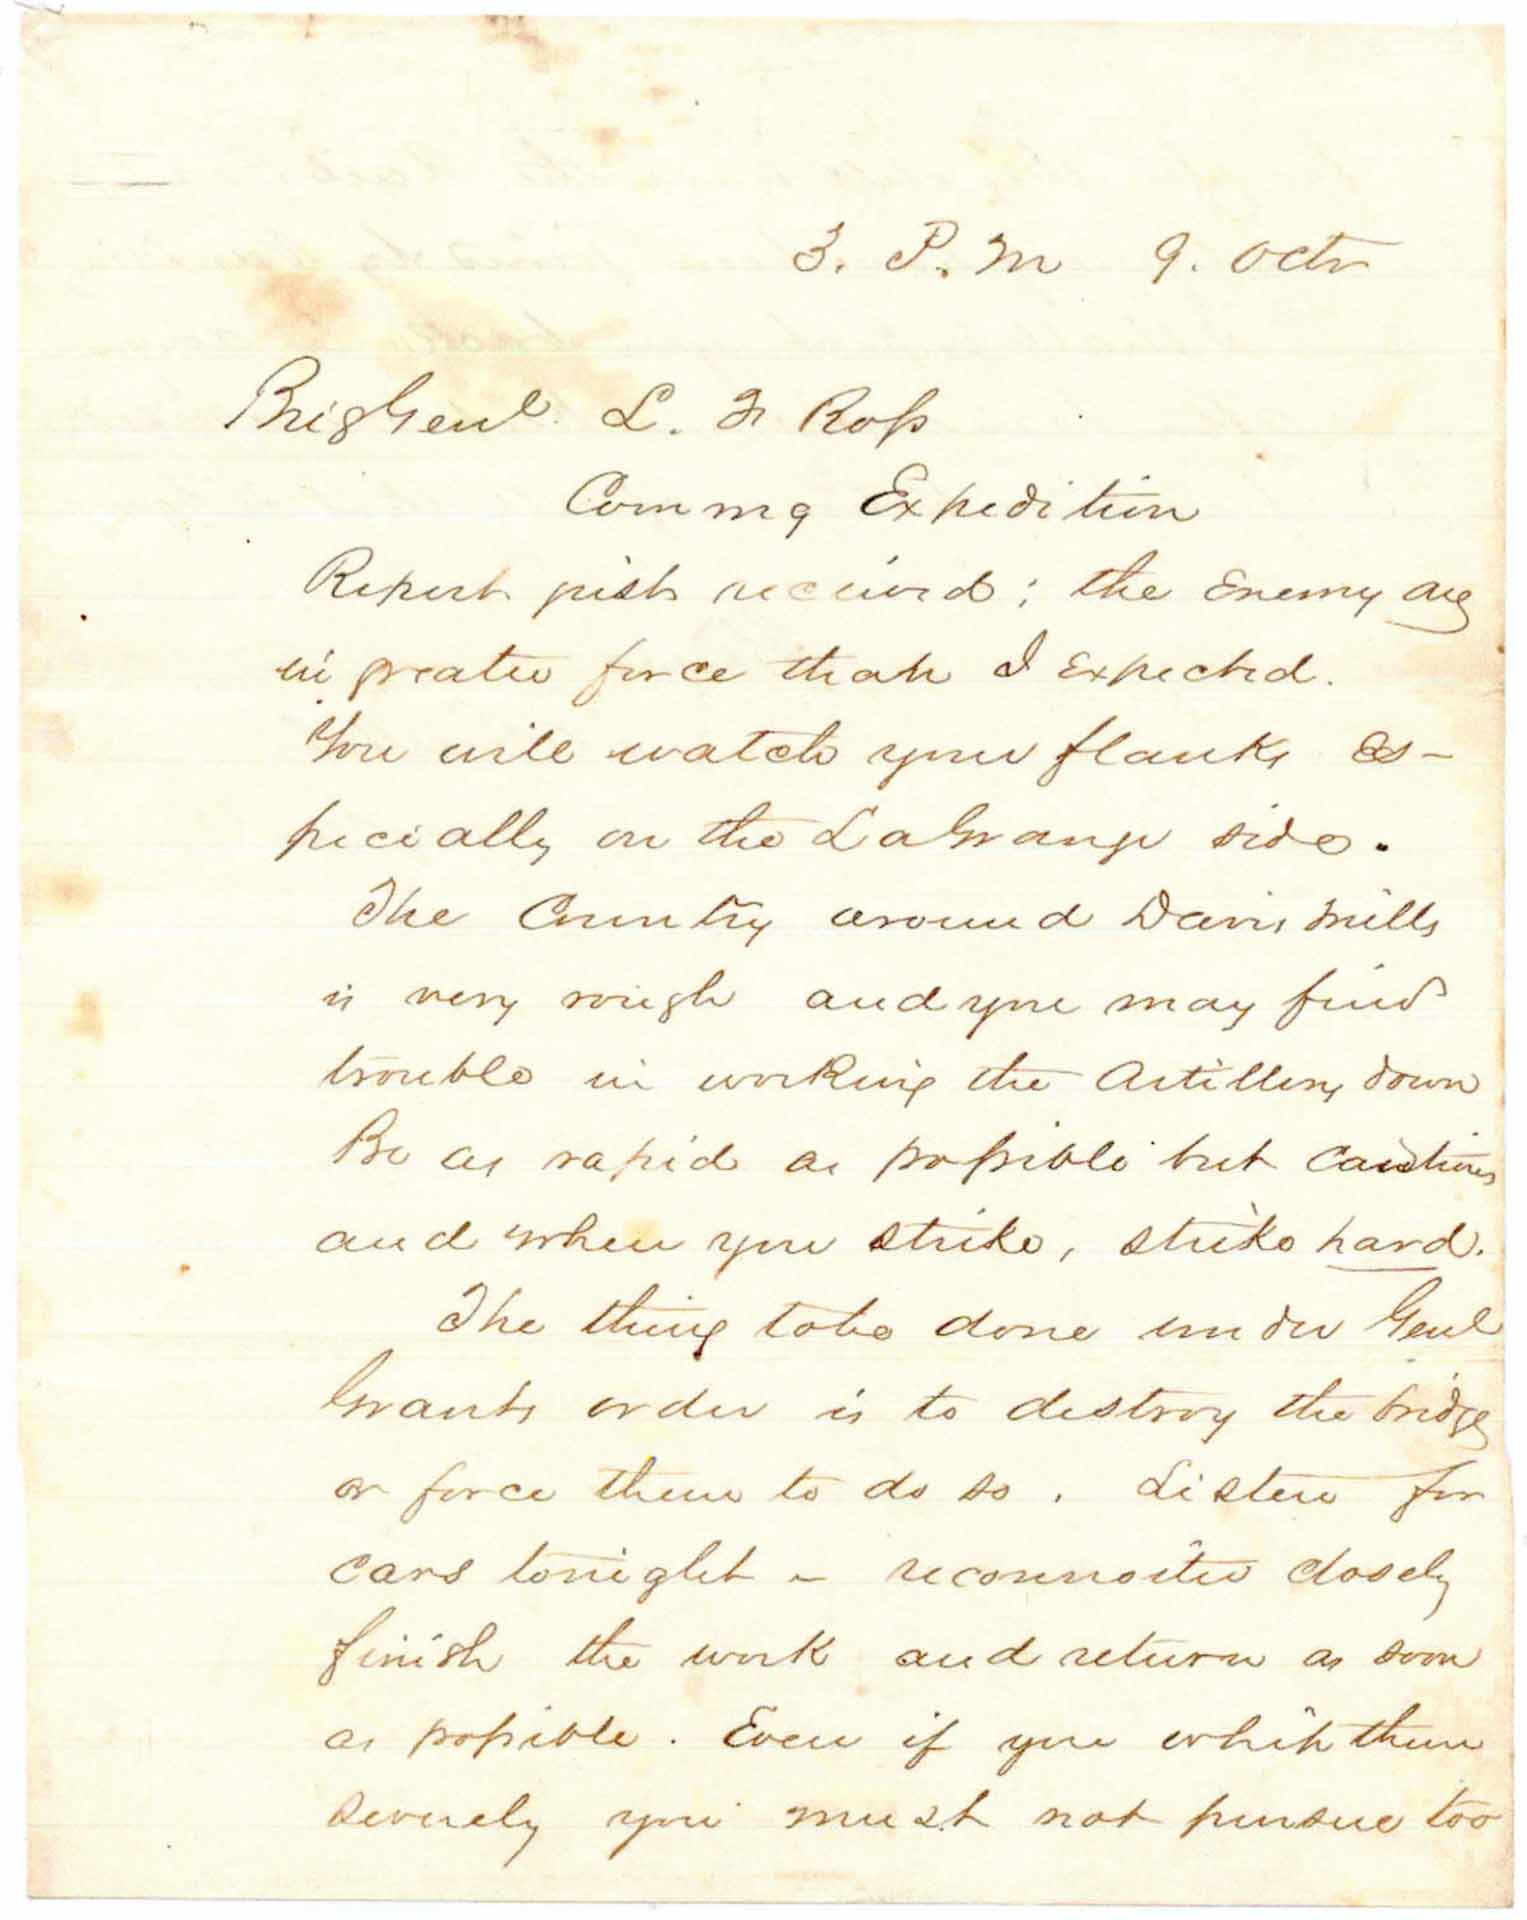 3. P. M 9. Octr
Brig Genl. L. F Ross
Commg Expedition
Report just received; the Enemy are
in greater force than I expected.
You will watch your flanks es-
pecially on the LaGrange side.
The Country around Davis Mills
is very rough and you may find
trouble in working the Artillery down
Be as rapid as possible but cautious
and when you strike, strike hard.
The thing to be done under Genl
Grants order is to destroy the bridge
or force them to do so. Listen for
cars tonight - reconnoiter closely
finish the work and return as soon
as possible. Even if you whip them
severely you must not pursue too